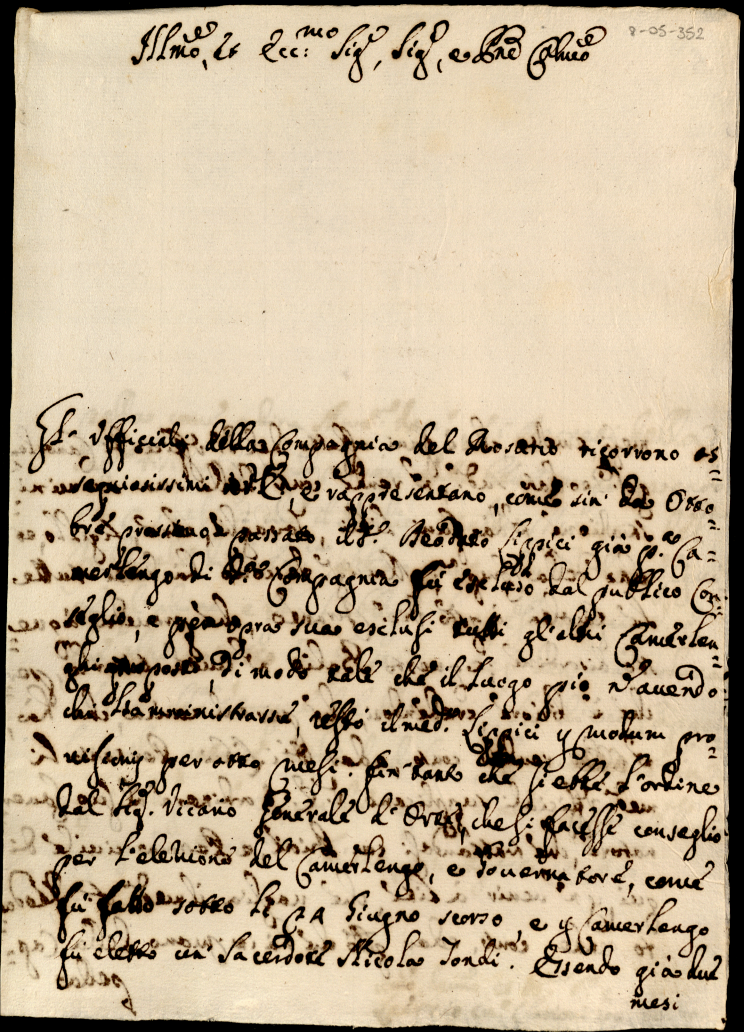 8-05-352
Ill.mo, et Ecc:mo Sig.re, Sig.re, e Pne Colmo
Gl' Vffitiali della Compagnia del Rosario ricorrono os=
sequiosissimi, e rappresentano, come sin da Otto=
bre prossimo passato, il Lippici già p.o Ca=
merlengo di d.a Compagnia fù escluso dal publico Con=
seglio, e per opra sua esclusi tutti gl'altri Camerlen=
ghi proposti, di modo tale che il luogo pio n' avendo
chi l'amministrasse, restò il med.o Lippici p modum pro=
uisionis per otto mesi. fin tanto che si ebbe l'ordine
dal Sig.r Vicario Generale che si facesse conseglio
per l'elezione del Camerlengo, e Gouernatore, come
fù fatto sotto li 24 Giugno scorso, e p Camerlengo
fù eletto un Sacerdote Nicola Tondi. Essendo già due
mesi